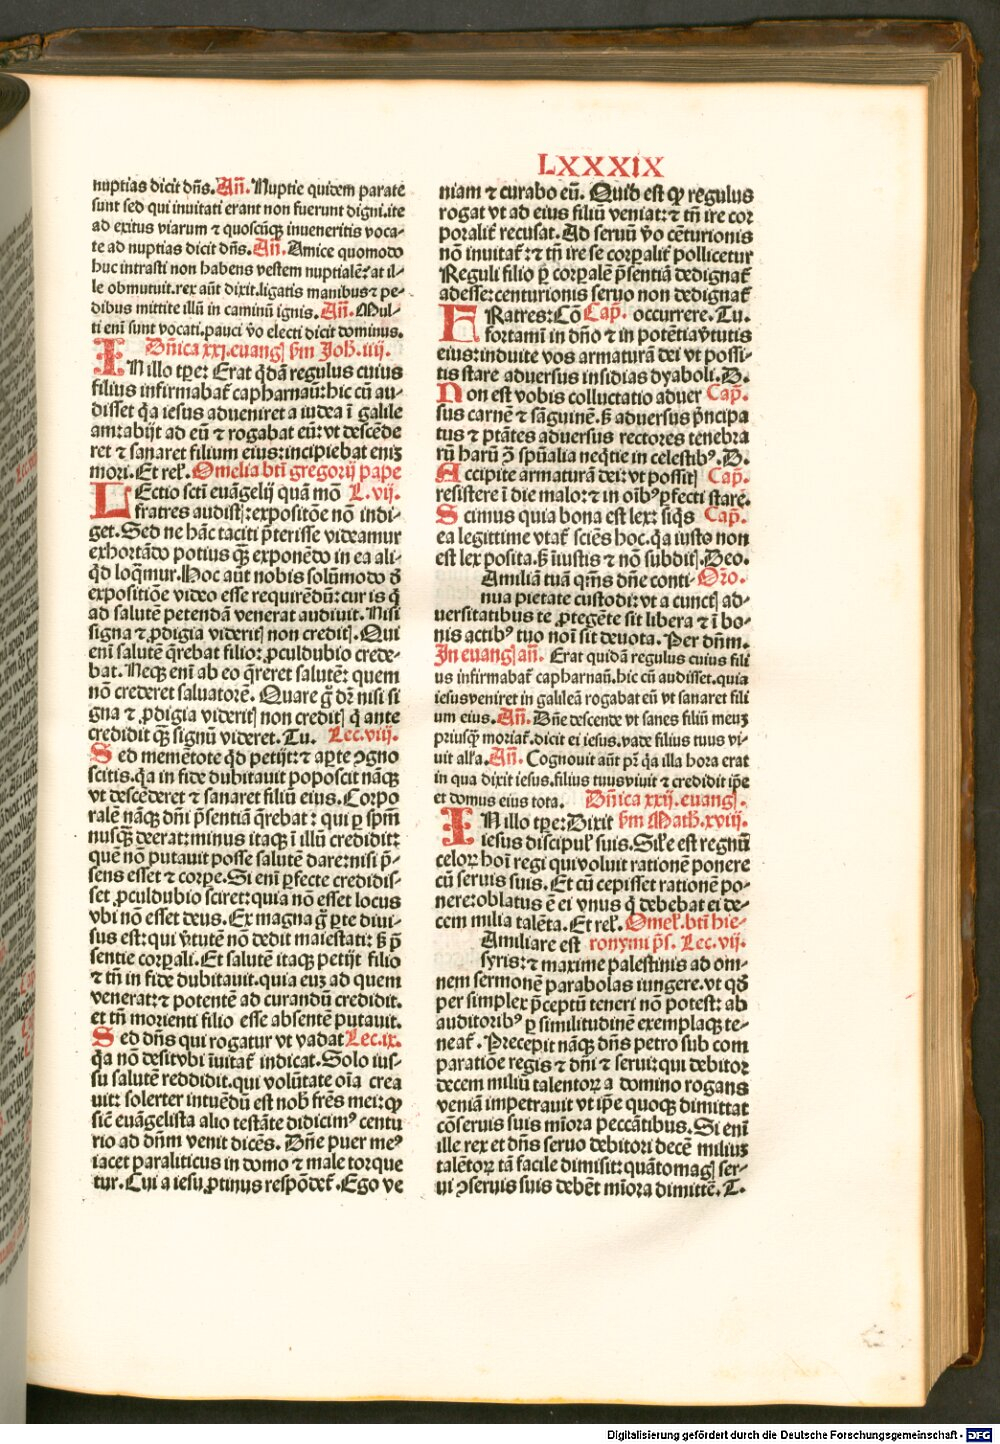 LXXXIX
nuptias dicit dñs. Añ. Nuptie quidem parate
sunt sed qui inuitati erant non fuerunt digni.ite
ad exitus viarum ⁊ quoscũqꝫ inueneritis voca-
te ad nuptias dicit dñs. Añ. Amice quomodo
huc intrasti non habens vestem nuptialẽ:at il-
le obmutuit.rex aũt dixit.ligatis manibus ⁊ pe-
dibus mittite illũ in caminũ ignis. Añ. Mul-
ti enĩ sunt vocati.pauci ṽo electi dicit dominus.
Dñica xxj.euangꝭ ẜm Joh̃.iiij.
IN illo tꝑe: Erat q̃dã regulus cuius
filius infirmabat̃ capharnaũ:hic cũ au-
disset q̃a iesus adueniret a iudea ĩ galile
am:abijt ad eũ ⁊ rogabat eũ:vt descẽde
ret ⁊ sanaret filium eius:incipiebat enĩꝫ
mori. Et rel̃. Omelia btĩ gregorij pape
LEctio scti euãgelij quã mõ L.vij.
fratres audistꝭ:expositõe nõ indi-
get. Sed ne hãc taciti p̃terisse videamur
exhortãdo potius qꝫ̃ exponẽdo in ea ali-
q̃d loq̃mur. Hoc aũt nobis solũmodo d̃
expositiõe video esse requirẽdũ: cur is q̃
ad salutẽ petendã venerat audiuit. Nisi
signa ⁊ ꝓdigia videritꝭ non creditꝭ. Qui
enĩ salutẽ q̃rebat filio: ꝓculdubio crede-
bat. Neqꝫ enĩ ab eo q̃reret salutẽ: quem
nõ crederet saluatorẽ. Quare g̃ dr̃ nisi si
gna ⁊ ꝓdigia videritꝭ non creditꝭ q̃ ante
credidit qꝫ̃ signũ videret. Tu. Lec.viij.
Sed memẽtote q̃d petijt: ⁊ aꝑte ꝯgno
scitis.q̃a in fide dubitauit poposcit nãqꝫ
vt descẽderet ⁊ sanaret filiũ eius. Corpo
ralẽ nãqꝫ dñi p̃sentiã q̃rebat: qui ꝑ sp̃m
nusqꝫ̃ deerat:minus itaqꝫ ĩ illũ credidit:
quẽ nõ putauit posse salutẽ dare:nisi p̃-
sens esset ⁊ corpe. Si enĩ ꝑfecte credidis-
set ꝓculdubio sciret: quia nõ esset locus
vbi nõ esset deus. Ex magna g̃ ꝑte diui-
sus est: qui ṽtutẽ nõ dedit maiestati: ẜ p̃
sentie corpali. Et salutẽ itaqꝫ petijt filio
⁊ tñ in fide dubitauit.quia eũꝫ ad quem
venerat: ⁊ potentẽ ad curandũ credidit.
et tñ morienti filio esse absentẽ putauit.
Sed dñs qui rogatur vt vadat Lec.ix.
q̃a nõ desit vbi ĩuitat̃ indicat. Solo ius-
su salutẽ reddidit.qui volũtate oĩa crea
uit: solerter intuẽdũ est nob̃ fr̃es mei: qꝙ
sic̃ euãgelista alio testãte didicim⁹ centu
rio ad dñm venit dicẽs. Dñe puer me⁹
iacet paraliticus in domo ⁊ male torque
tur. Cui a iesu ꝓtinus respõdet̃. Ego ve
niam ⁊ curabo eũ. Quid est qꝙ regulus
rogat vt ad eius filiũ veniat: ⁊ tñ ire cor
poralit̃ recusat. Ad seruũ ṽo cẽturionis
nõ inuitat̃: ⁊ tñ ire se corꝑalit̃ pollicetur
Reguli filio ꝑ corꝑalẽ p̃sentiã dedignat̃
adesse: centurionis seruo non dedignat̃
FRatres: Cõ Cap̃. occurrere. Tu.
fortamĩ in dño ⁊ in potẽtia ṽtutis
eius:induite vos armaturã dei vt possi-
tis stare aduersus insidias dyaboli. D.
Non est vobis colluctatio aduer Cap̃.
sus carnẽ ⁊ sãguinẽ.ẜ aduersus p̃ncipa
tus ⁊ ptãtes aduersus rectores tenebra
rũ harũ ꝯ̃ spũalia neq̃tie in celestib⁹. D.
Accipite armaturã dei: vt possitꝭ Cap̃.
resistere ĩ die malo: ⁊ in oĩb⁹ ꝑfecti stare.
Scimus quia bona est lex: siq̃s Cap̃.
ea legittime vtat̃ sciẽs hoc.q̃a iusto non
est lex posita. ẜ ĩiustis ⁊ nõ subditꝭ. Deo.
Amiliã tuã q̃ms dñe conti- Or̃o.
nua pietate custodi: vt a cunctꝭ ad-
uersitatibus te ꝓtegẽte sit libera ⁊ ĩ bo-
nis actib⁹ tuo noĩ sit deuota. Per dñm.
In euangꝭ añ. Erat quidã regulus cuius fili
us infirmabat̃ capharnaũ.hic cũ audisset.quia
iesus veniret in galileã rogabat eũ vt sanaret fili
um eius. Añ. Dñe descende vt sanes filiũ meuꝫ
priusqꝫ̃ moriat̃.dicit ei iesus.vade filius tuus vi-
uit all'a. Añ. Cognouit aũt pr̃ q̃a illa hora erat
in qua dixit iesus.filius tuus viuit ⁊ credidit ip̃e
et domus eius tota. Dñica xxij.euangꝭ.
IN illo tꝑe: Dixit ẜm Math.xviij.
iesus discipul̃ suis. Sil̃e est regnũ
celoꝝ hoĩ regi qui voluit rationẽ ponere
cũ seruis suis. Et cũ cepisset rationẽ po-
nere:oblatus ẽ ei vnus q̃ debebat ei de-
cem milia talẽta. Et rel̃. Omel̃.btĩ hie-
Amiliare est ronymi p̃s. Lec.vij.
syris: ⁊ maxime palestinis ad om-
nem sermonẽ parabolas iungere.vt qd̃
per simplex p̃ceptũ teneri nõ potest: ab
auditorib⁹ ꝑ similitudinẽ exemplaqꝫ te-
neat̃. Precepit nãqꝫ dñs petro sub com
paratiõe regis ⁊ dñi ⁊ serui: qui debitor
decem miliũ talentoꝝ a domino rogans
veniã impetrauit vt ip̃e quoqꝫ dimittat
cõseruis suis mĩora peccãtibus. Si enĩ
ille rex et dñs seruo debitori decẽ miliuꝫ
talẽtoꝝ tã facile dimisit: quãtomagꝭ ser-
ui ꝯseruis suis debẽt mĩora dimittẽ. T.
Digitalisierung gefördert durch die Deutsche Forschungsgemeinschaft - DFG